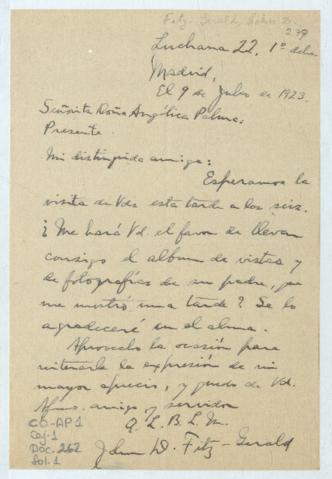 Fitz-Gerald, John D.
239
Luchana 22, 1º dcha
Madrid,
El 9 de Julio de 1923.
Señorita Doña Angélica Palma:
Presente.
Mi distinguida amiga:
Esperamos la
visita de Vds esta tarde a las seis.
¿Me hará Vd. el favor de llevar
consigo el album de vistas y
de fotografías de su padre, que
me mostró una tarde? Se lo
agradeceré en el alma.
Aprovecho la ocasión para
reiterarle la expresión de mi
mayor aprecio, y quedo de Vd.
Afmo. amigo y servidor
Q. L. B. L. M.
John D. Fitz-Gerald
CO-AP1
Caj-1
Doc. 262
fol. 1